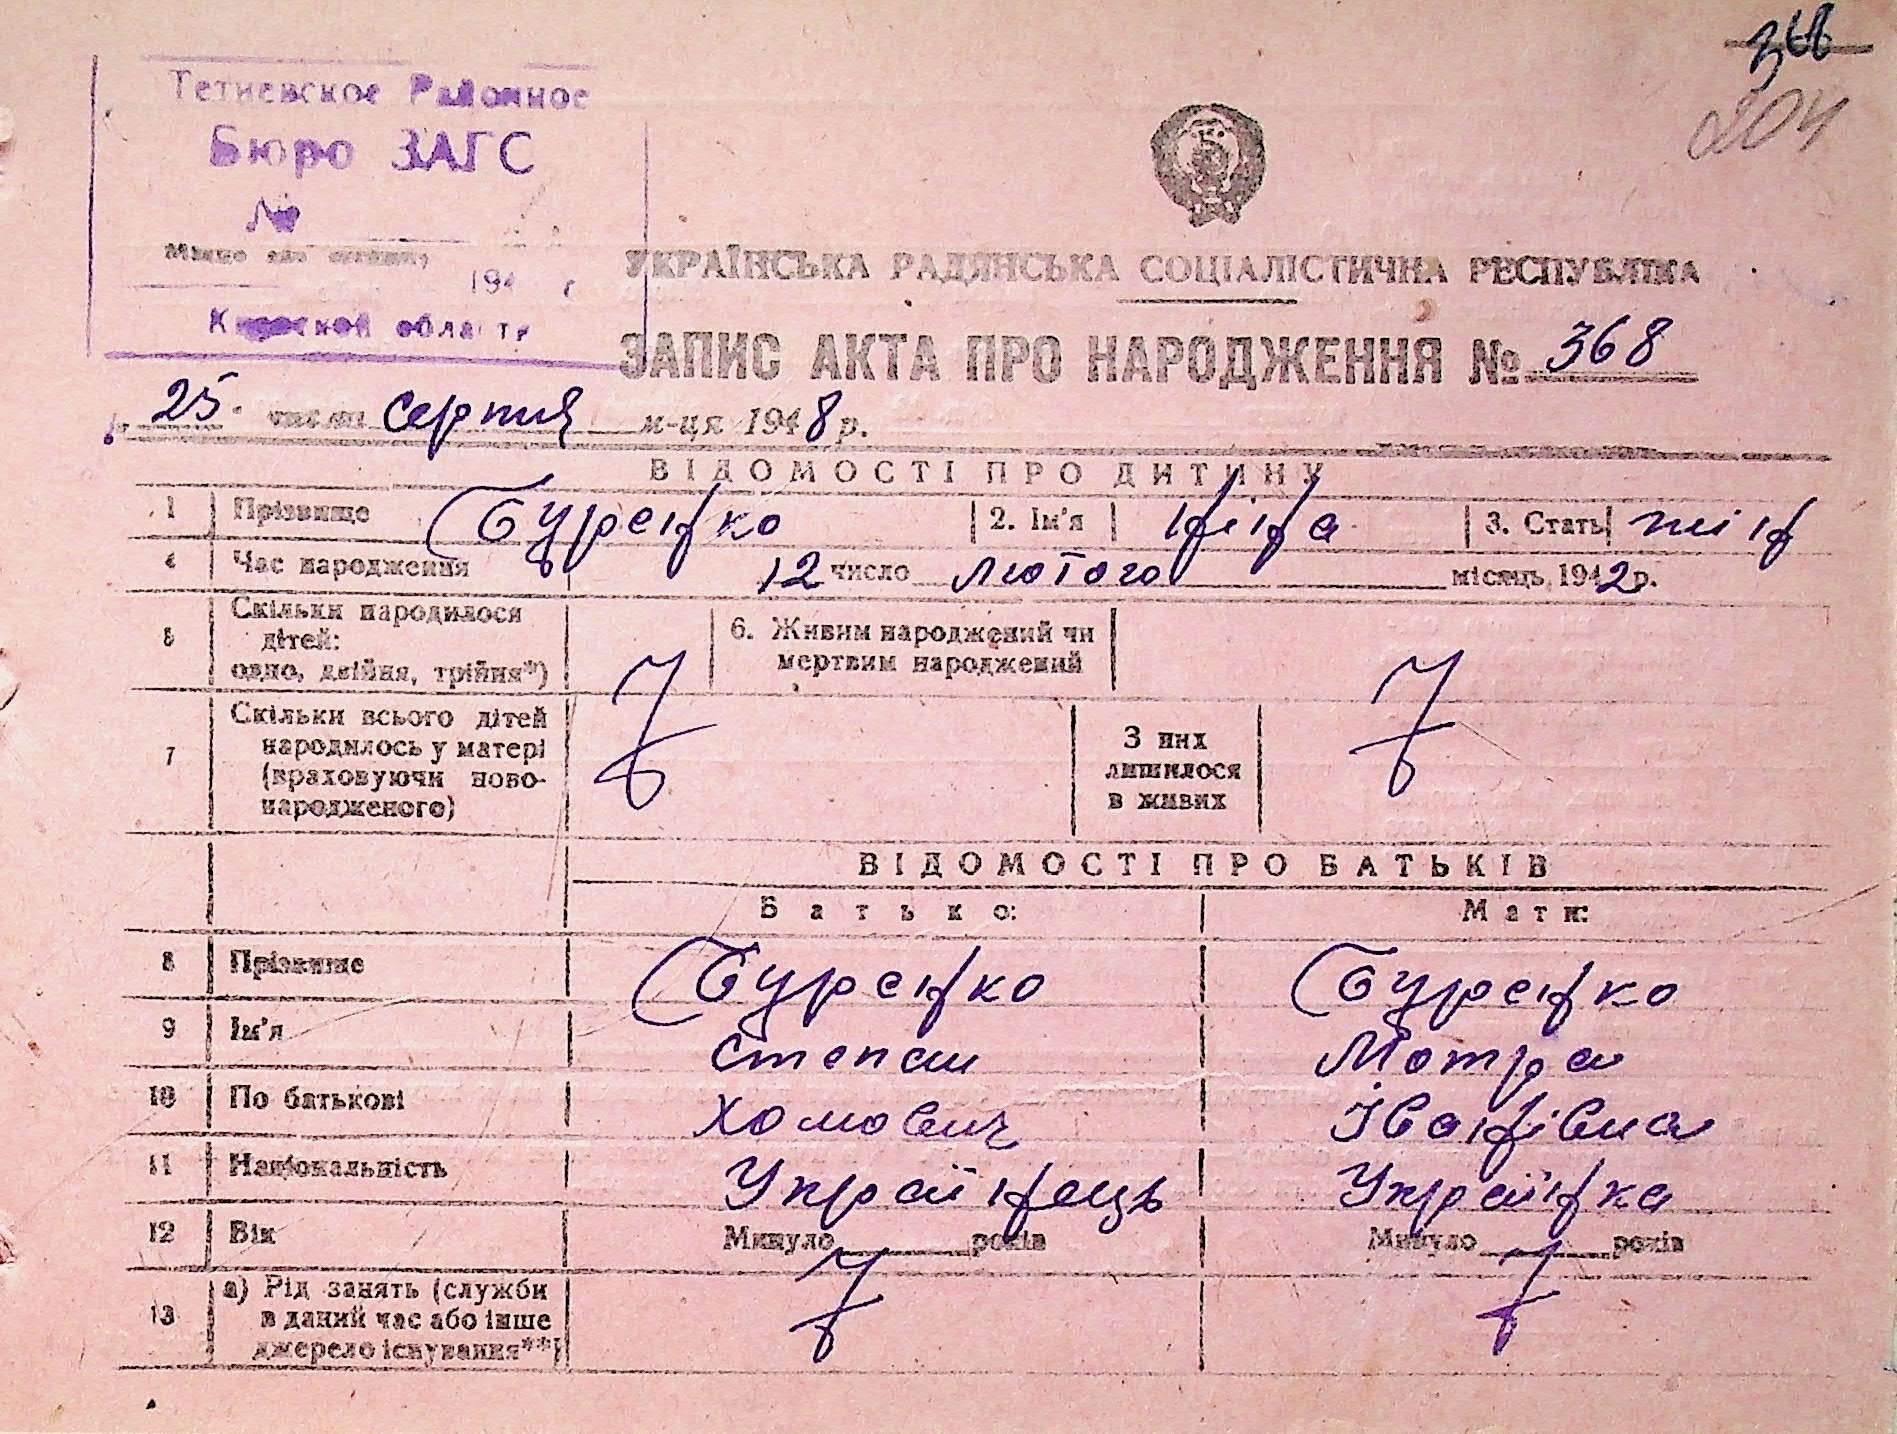 368
204
Тетиевское Районное
Бюро ЗАГС
№
194 г
Киевской области
УКРАЇНСЬКА РАДЯНСЬКА СОЦІАЛІСТИЧНА РЕСПУБЛІКА
ЗАПИС АКТА ПРО НАРОДЖЕННЯ № 368
25 числа серпня м-ця 1948 р.
ВІДОМОСТІ ПРО ДИТИНУ
1 Прізвище Буренко 2. Ім'я Ніна 3. Стать жін
4 Час народження 12 число лютого місяць 1942 р.
5 Скільки народилося дітей: одно, двійня, трійня*) 6. Живим народжений чи мертвим народжений
7 Скільки всього дітей народилось у матері (враховуючи ново-народженого) З них лишилося в живих
ВІДОМОСТІ ПРО БАТЬКІВ
Батько: Мати:
8 Прізвище Буренко Буренко
9 Ім'я Степан Мотря
10 По батькові Хомович Іванівна
11 Національність Українець Українка
12 Вік Минуло років Минуло років
13 а) Рід занять (служби в даний час або інше джерело існування**)